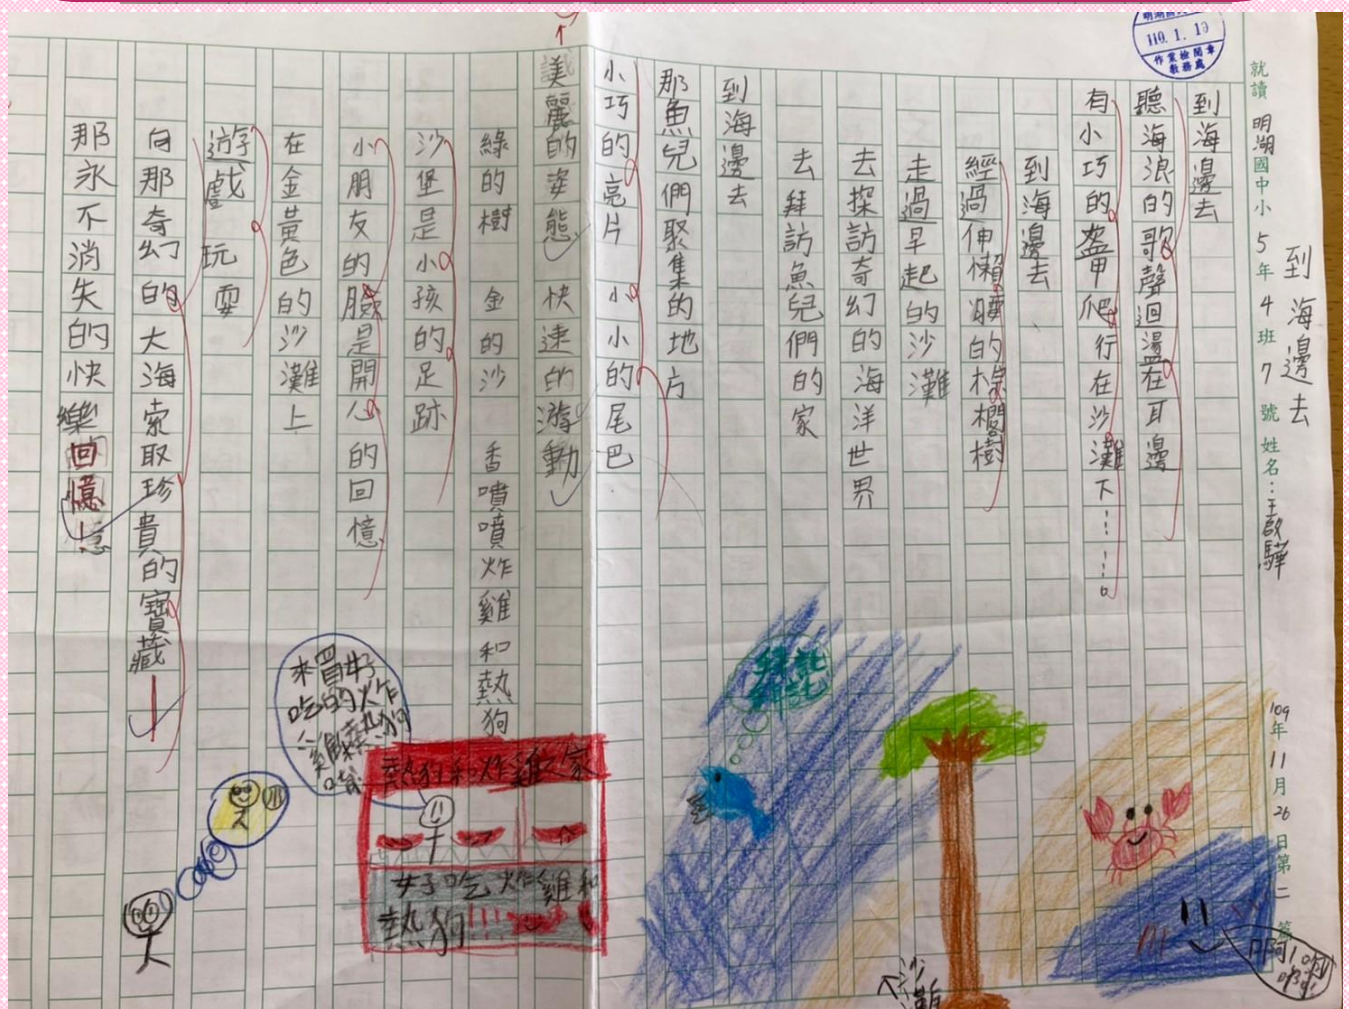 到海邊去
就讀 明湖國中小 5年4班7號 姓名：王啟驊
109年11月26日第二篇
110.1.19
作業檢閱章
教務處
到海邊去
聽海浪的歌聲迴盪在耳邊
有小巧的盔甲爬行在沙灘下……。
到海邊去
經過伸懶腰的棕櫚樹
走過早起的沙灘
去探訪奇幻的海洋世界
去拜訪魚兒們的家
到海邊去
那魚兒們聚集的地方
小巧的亮片 小小的尾巴
美麗的姿態 快速的游動
綠的樹 金的沙 香噴噴炸雞和熱狗
沙堡是小孩的足跡
小朋友的臉是開心的回憶
在金黃色的沙灘上
遊戲玩耍
向那奇幻的大海索取珍貴的寶藏
那永不消失的快樂回憶
來買好吃的炸雞熱狗哦
熱狗和炸雞之家
好吃炸雞和
熱狗!!!
沙灘